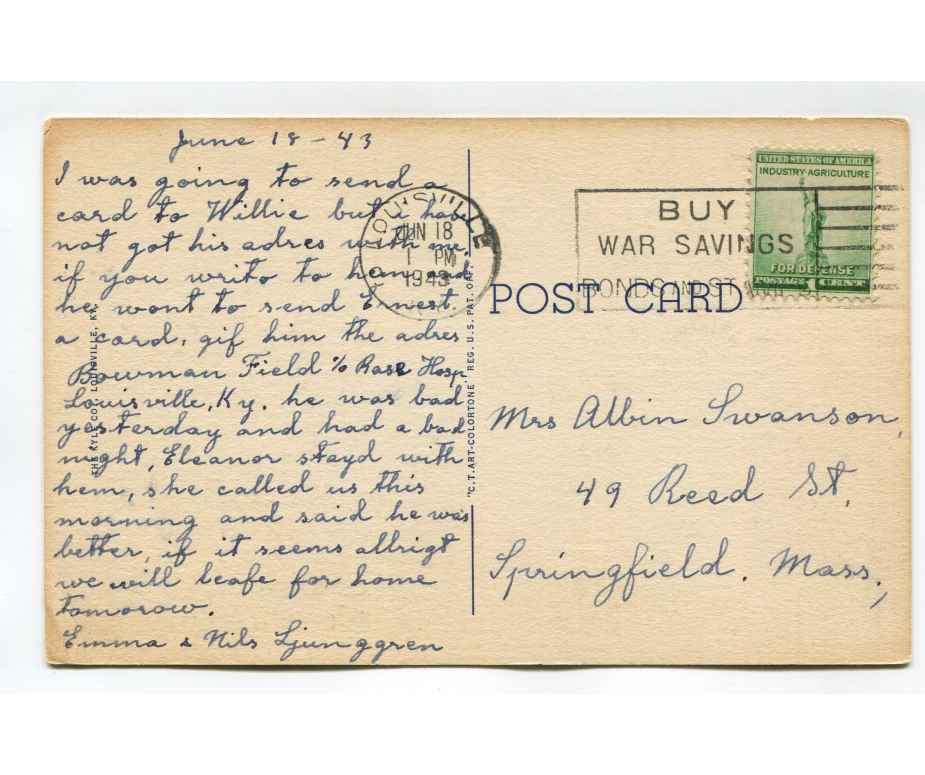 June 18 - 43
I was going to send a
card to Willie but i have
not got his adres with me,
if you write to hem and
he wont to send Ernest.
a card, gif him the adres
Bowman Field % Base Hosp
Louisville, Ky. he was bad
yesterday and had a bad
night, Eleanor stayd with
hem, she called us this
morning and said he was
better, if it seems allrigt
we will leafe for home
tomorow.
Emma & Nils Ljunggren
THE KYLE CO., LOUISVILLE, KY.
"C.T. ART-COLORTONE" REG. U.S. PAT. OFF.
LOUISVILLE
JUN 18
1 PM
1943
BUY
WAR SAVINGS
BONDS AND STAMPS
UNITED STATES OF AMERICA
INDUSTRY·AGRICULTURE
FOR DEFENSE
POSTAGE 1 CENT
POST CARD
Mrs Albin Swanson,
49 Reed St,
Springfield. Mass,